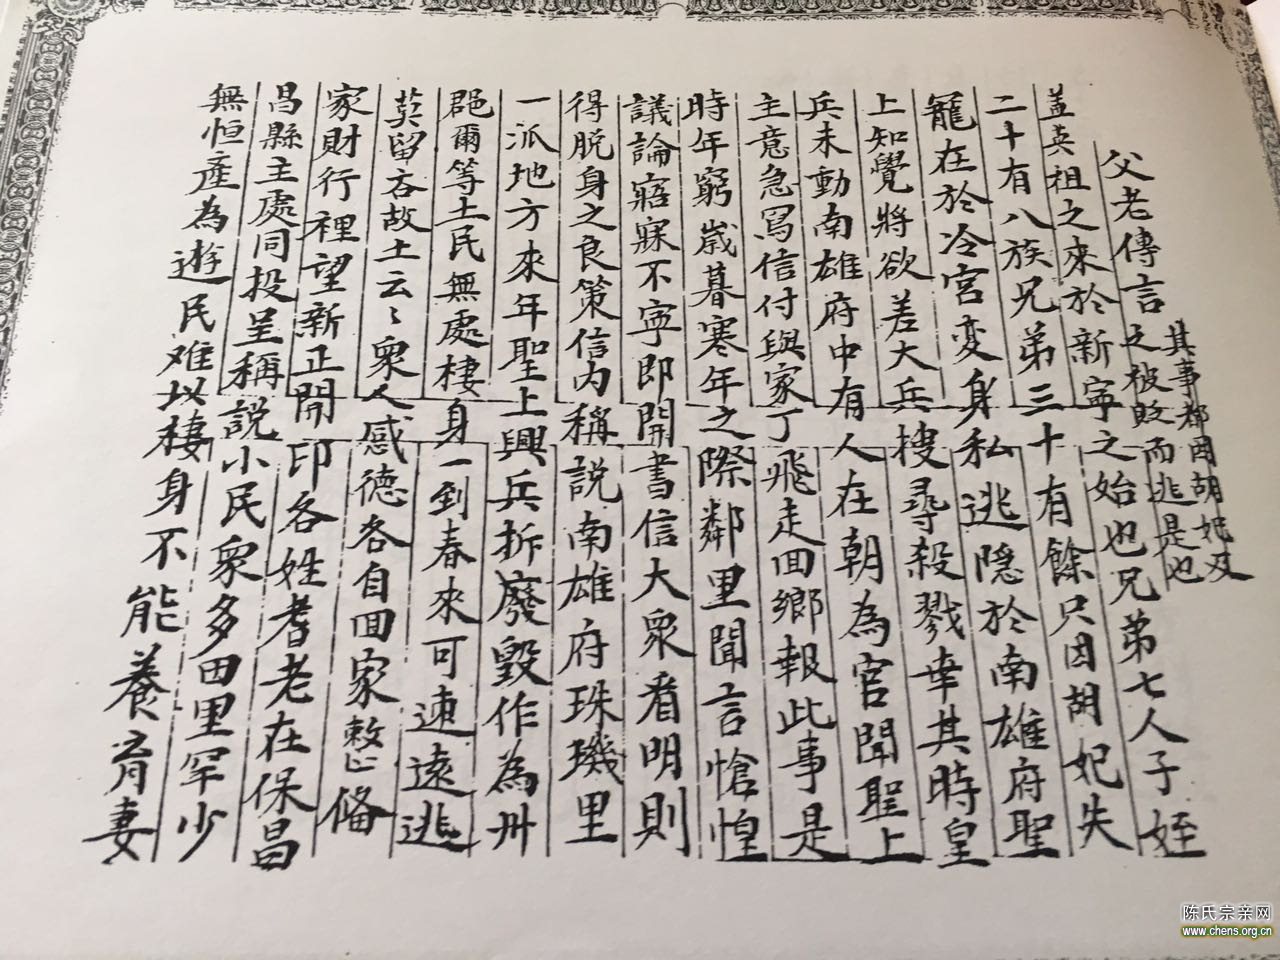 父老傳言
其事都因胡妃及
之被貶而逃是也
盖英祖之來於新寧之始也兄弟七人子姪
二十有八族兄弟三十有餘只因胡妃失
寵在於冷宮变身私逃隱於南雄府聖
上知覺將欲差大兵搜尋殺戮幸其時皇
兵未動南雄府中有人在朝為官聞聖上
主意急寫信付與家丁飛走回鄉報此事是
時年窮歲暮寒年之際鄰里聞言愴惶
議論寤寐不寧即開書信大衆看明則
得脱身之良策信内稱説南雄府珠璣里
一派地方來年聖上興兵拆廢毀作為州
郡爾等土民無處棲身一到春來可速遠逃
莫留吝故土云云衆人感德各自回家整俻
家財行裡望新正開印各姓耆老在保昌
昌縣主處同投呈稱説小民衆多田里罕少
無恒產為遊民难以棲身不能養育妻
陈氏宗亲网
www.chens.org.cn